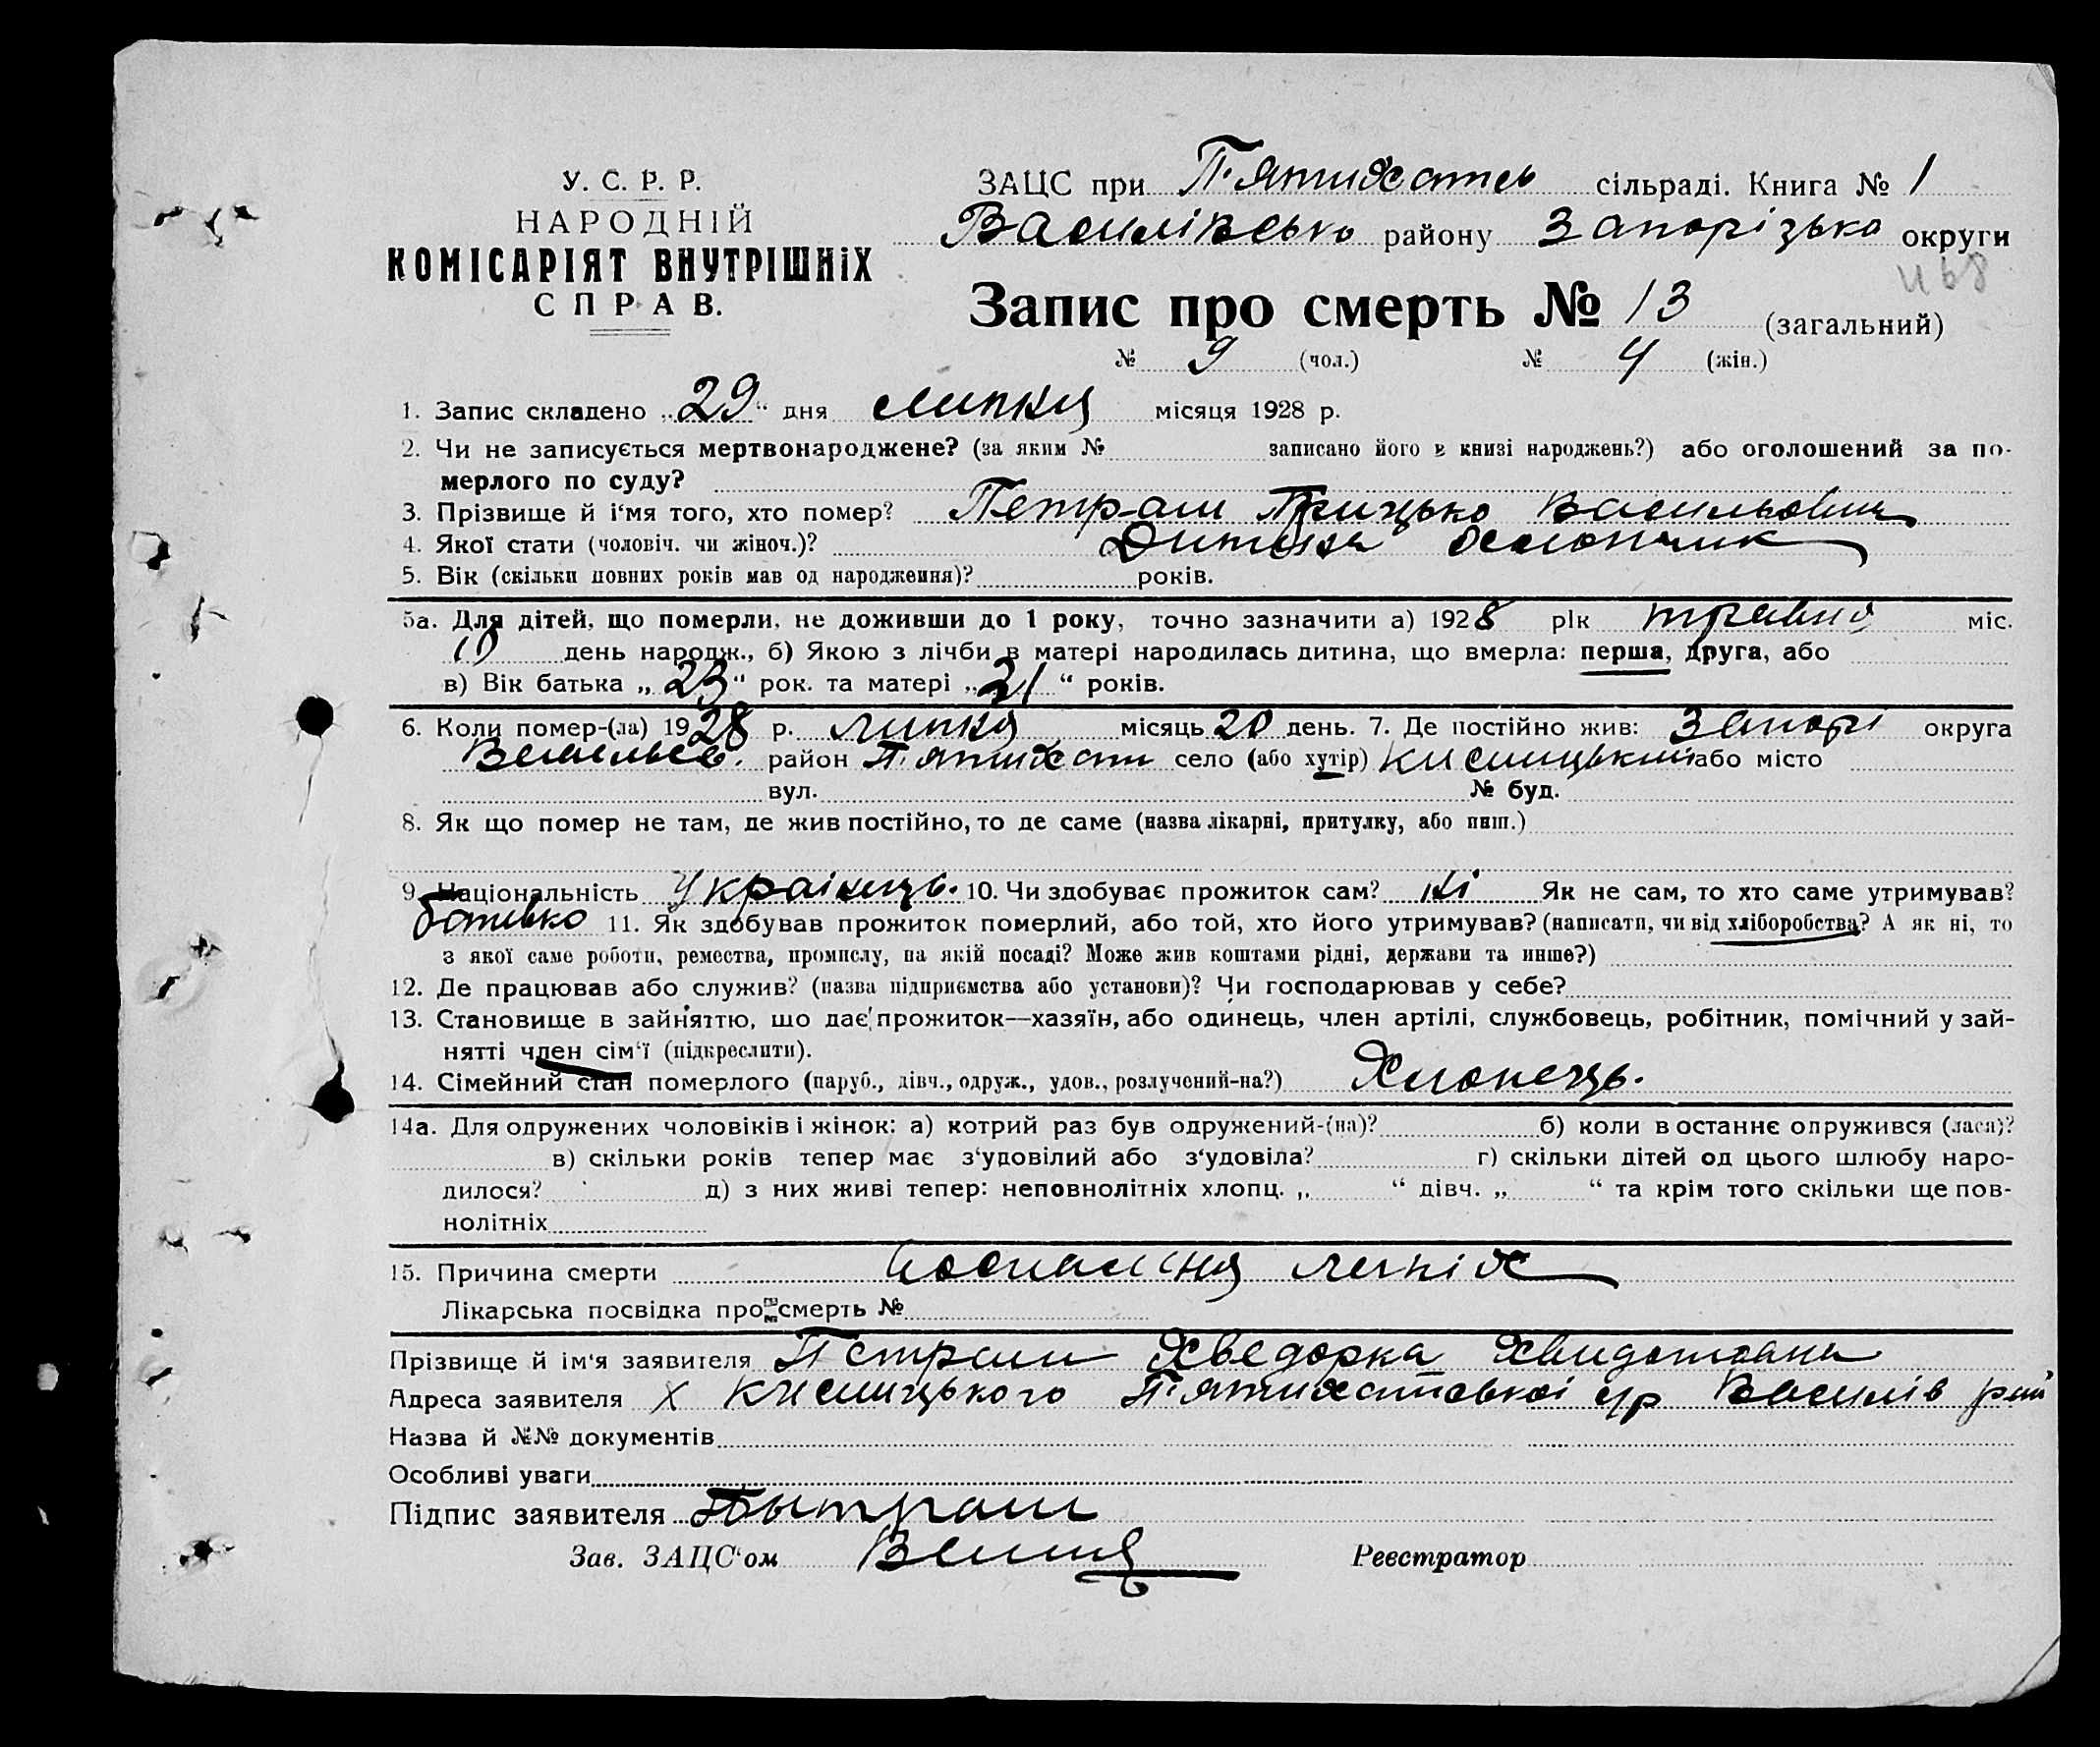 У. С. Р. Р.
НАРОДНІЙ
КОМІСАРІЯТ ВНУТРІШНіХ
СПРАВ.
ЗАЦС при П'ятихатсь сільраді. Книга № 1
Василівсько району Запорізько округи
468
Запис про смерть № 13 (загальний)
№ 9 (чол.) № 4 (жін.)
1. Запис складено „29“ дня липня місяця 1928 р.
2. Чи не записується мертвонароджене? (за яким № записано його в книзі народжень?) або оголошений за по-
мерлого по суду?
3. Прізвище й і'мя того, хто помер? Петраш Грицько Васильович
4. Якої стати (чоловіч. чи жіноч.)? Дитина
5. Вік (скільки повних років мав од народження)? років.
5а. Для дітей, що померли, не доживши до 1 року, точно зазначити а) 1928 рік травня міс.
10 день народж., б) Якою з лічби в матері народилась дитина, що вмерла: перша, друга, або
в) Вік батька „23“ рок. та матері „21“ років.
6. Коли помер-(ла) 1928 р. липня місяць 20 день. 7. Де постійно жив: Запорі округа
Васильев. район П'ятихати село (або хутір) Кислицький або місто
вул. № буд.
8. Як що помер не там, де жив постійно, то де саме (назва лікарні, притулку, або инш.)
9. Національність Українець. 10. Чи здобуває прожиток сам? Ні Як не сам, то хто саме утримував?
батько 11. Як здобував прожиток померлий, або той, хто його утримував? (написати, чи від хліборобства? А як ні, то
з якої саме роботи, ремества, промислу, на якій посаді? Може жив коштами рідні, держави та инше?)
12. Де працював або служив? (назва підприємства або установи)? Чи господарював у себе?
13. Становище в зайняттю, що дає прожиток—хазяїн, або одинець, член артілі, службовець, робітник, помічний у зай-
нятті член сім'ї (підкреслити).
14. Сімейний стан померлого (паруб., дівч., одруж., удов., розлучений-на?) Хлопець.
14а. Для одружених чоловіків і жінок: а) котрий раз був одружений-(на)? б) коли востаннє одружився (лася)?
в) скільки років тепер має з'удовілий або з'удовіла? г) скільки дітей од цього шлюбу наро-
дилося? д) з них живі тепер: неповнолітніх хлопц. „ “ дівч. „ “ та крім того скільки ще пов-
нолітніх
15. Причина смерти воспаленя легких
Лікарська посвідка про смерть №
Прізвище й ім'я заявителя Петраш Хведорка
Адреса заявителя Х Кислицького П'ятихатської с/р Василів рай
Назва й №№ документів
Особливі уваги
Підпис заявителя Пытраш
Зав. ЗАЦС'ом Реєстратор